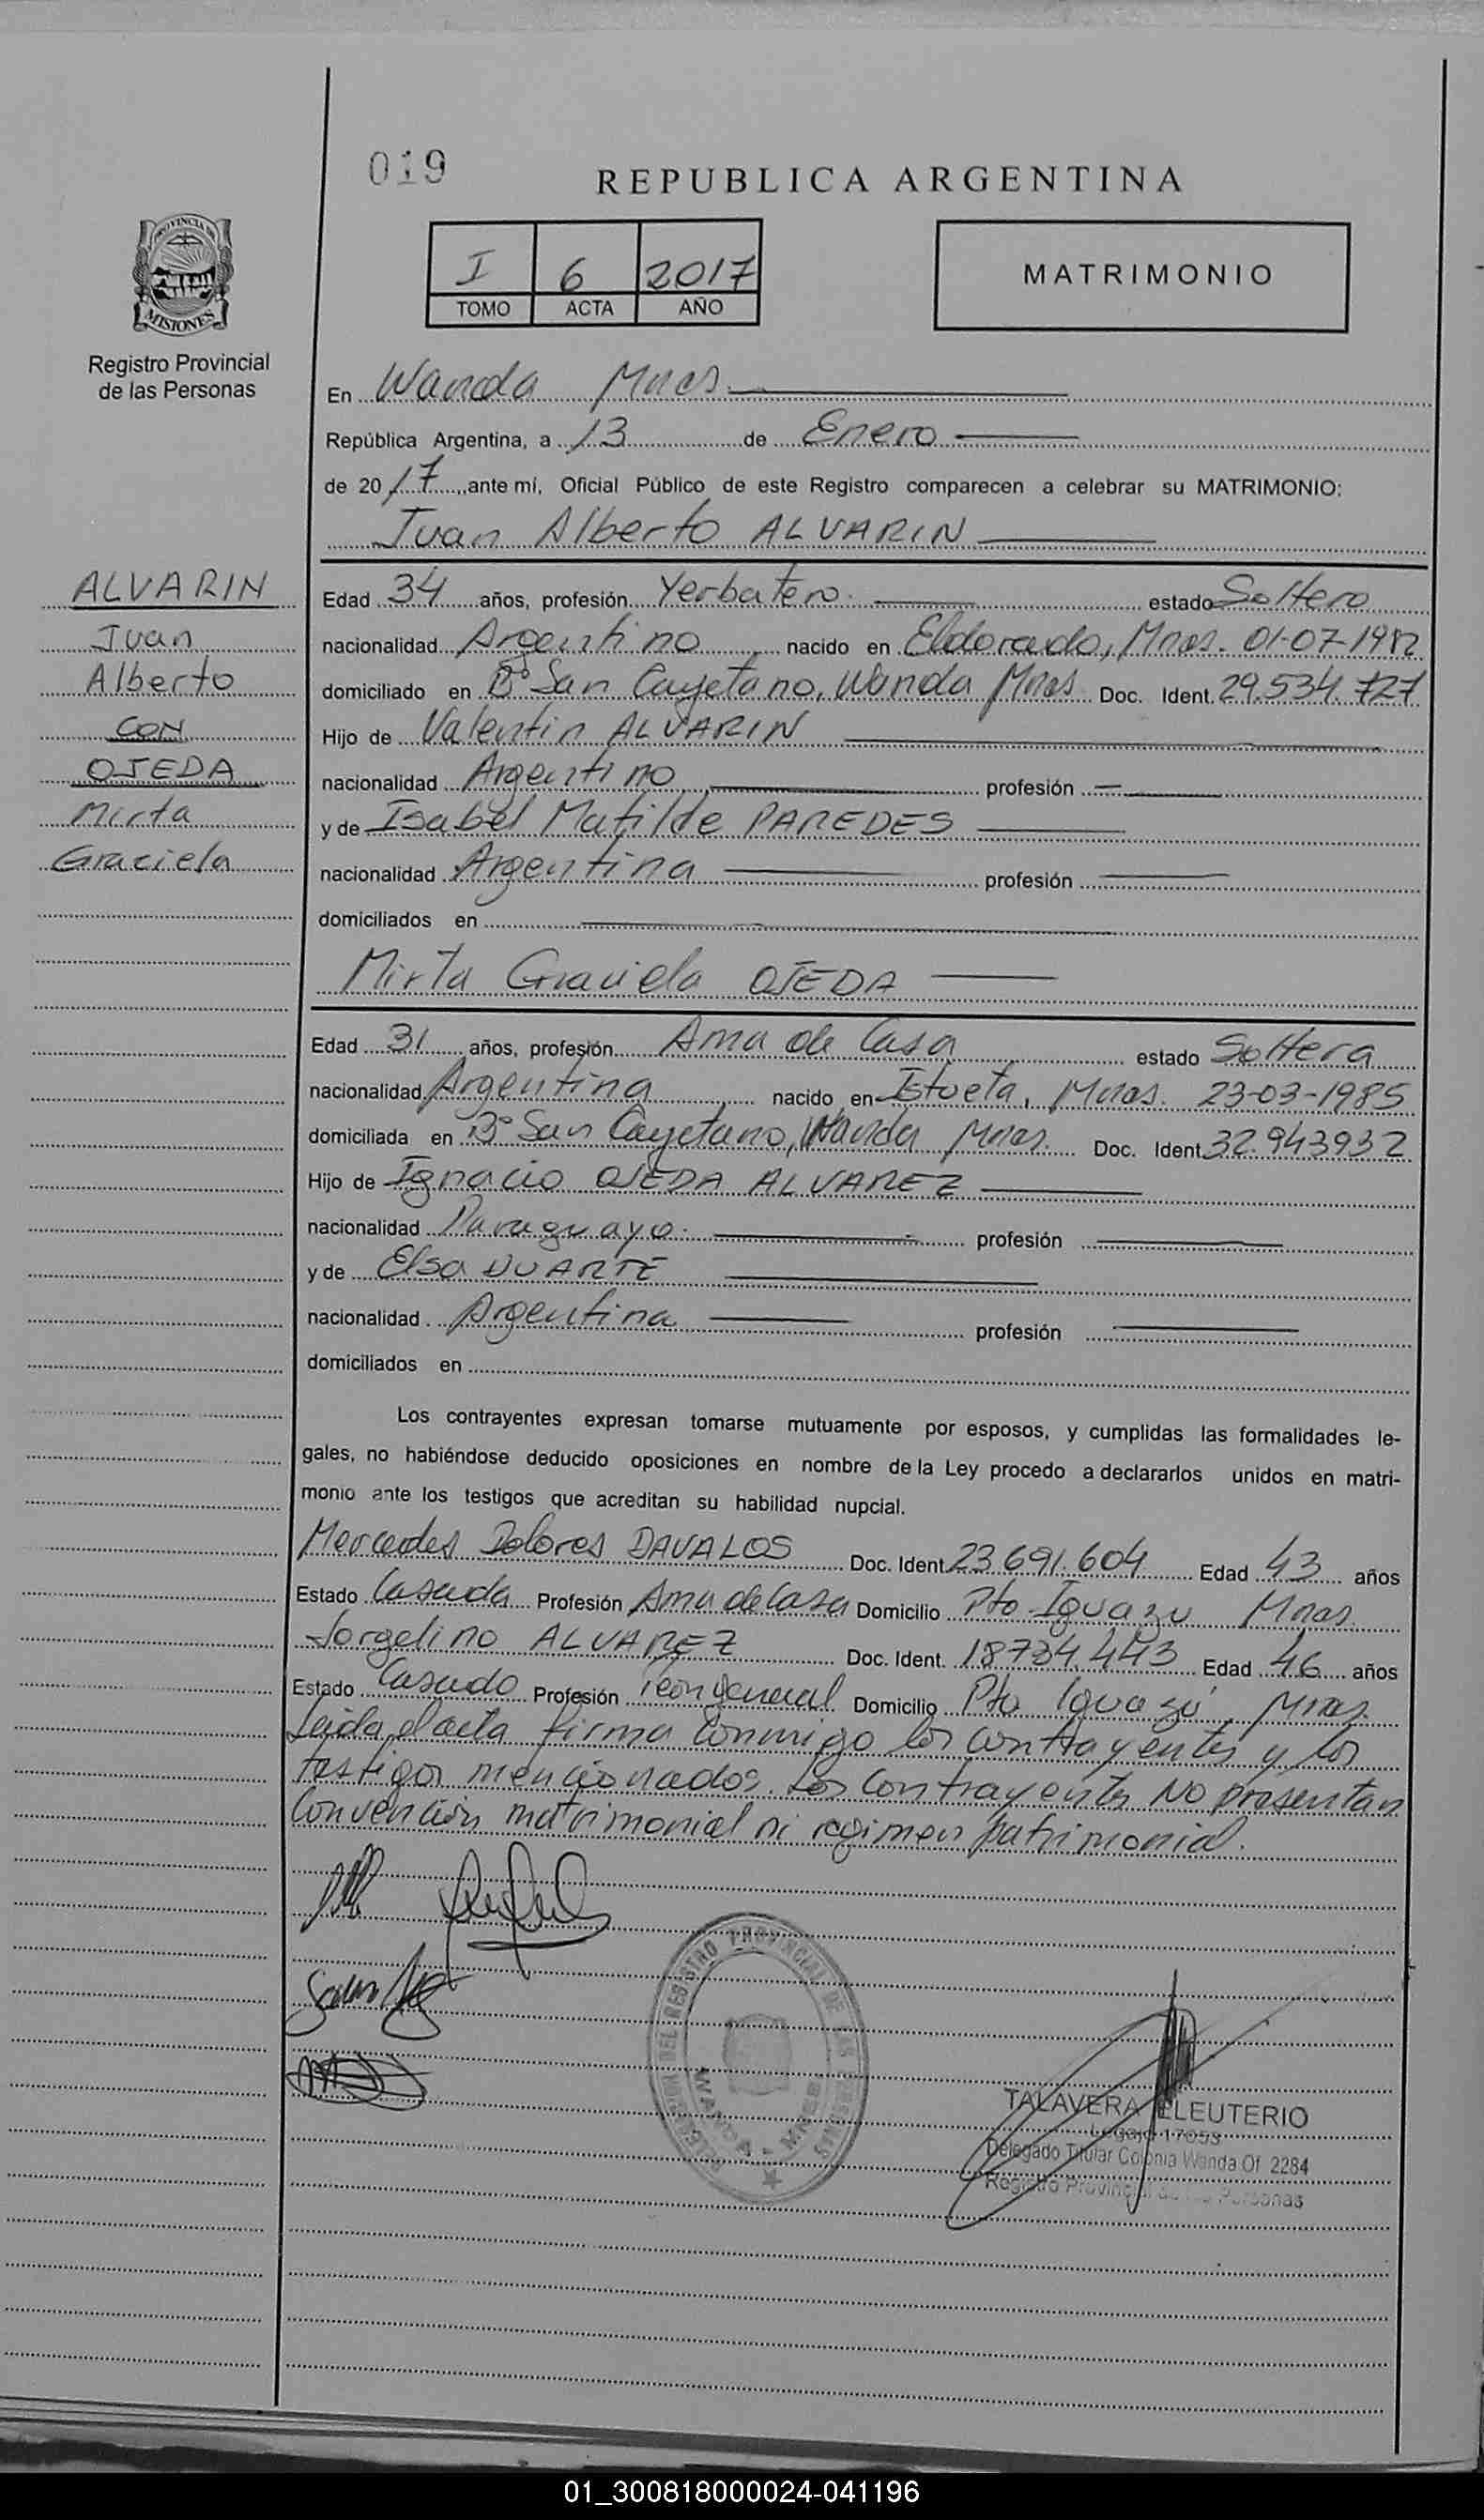 019
REPUBLICA ARGENTINA
PROVINCIA DE
MISIONES
Registro Provincial
de las Personas
I 6 2017
TOMO ACTA AÑO
MATRIMONIO
En Wanda Mnes.
República Argentina, a 13 de Enero
de 2017 ante mí, Oficial Público de este Registro comparecen a celebrar su MATRIMONIO:
Juan Alberto ALVARIN
ALVARIN
Juan
Alberto
CON
OJEDA
Mirta
Graciela
Edad 34 años, profesión Yerbatero. estado Soltero
nacionalidad Argentino nacido en Eldorado, Mnes. 01-07-1982
domiciliado en B° San Cayetano, Wanda Mnes Doc. Ident. 29.534.727
Hijo de Valentin ALVARIN
nacionalidad Argentino profesión
y de Isabel Matilde PAREDES
nacionalidad Argentina profesión
domiciliados en
Mirta Graciela OJEDA
Edad 31 años, profesión Ama de Casa estado Soltera
nacionalidad Argentina nacido en Istueta, Mnes. 23-03-1985
domiciliada en B° San Cayetano, Wanda Mnes. Doc. Ident 32.943932
Hijo de Ignacio OJEDA ALVAREZ
nacionalidad Paraguayo. profesión
y de Elsa DUARTE
nacionalidad Argentina profesión
domiciliados en
Los contrayentes expresan tomarse mutuamente por esposos, y cumplidas las formalidades le-
gales, no habiéndose deducido oposiciones en nombre de la Ley procedo a declararlos unidos en matri-
monio ante los testigos que acreditan su habilidad nupcial.
Mercedes Dolores DAVALOS Doc. Ident 23.691.604 Edad 43 años
Estado Casada Profesión Ama de Casa Domicilio Pto Iguazu Mnes.
Jorgelino ALVAREZ Doc. Ident. 18734.443 Edad 46 años
Estado Casado Profesión Peón general Domicilio Pto Iguazú, Mnes.
Leida el acta firma conmigo los contrayentes y los
testigos mencionados. Los contrayentes NO presentan
Convención matrimonial ni regimen patrimonial.
DELEGACION DEL REGISTRO PROVINCIAL DE LAS PERSONAS
WANDA - MNES
TALAVERA ELEUTERIO
Legajo 17053
Delegado Titular Colonia Wanda Of 2284
Registro Provincial de las Personas
01_300818000024-041196